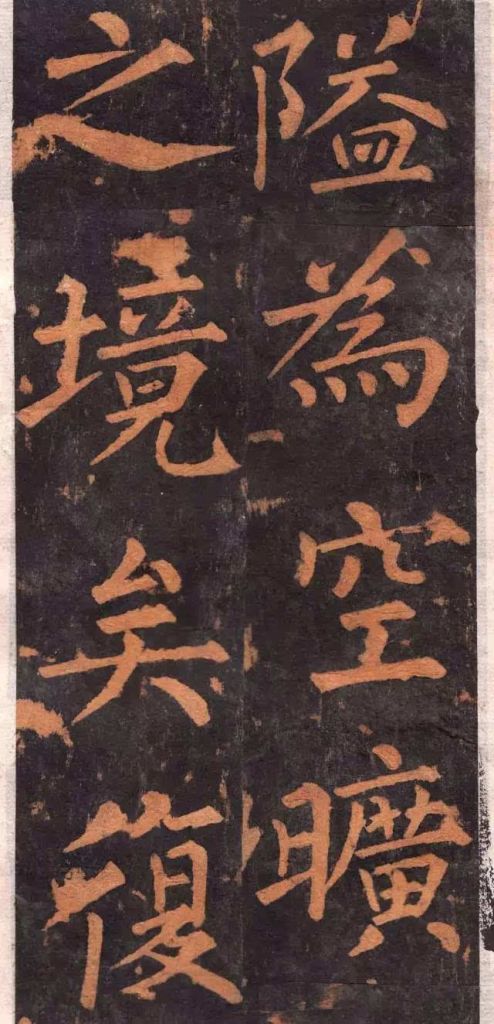 隘為空曠
之境矣復